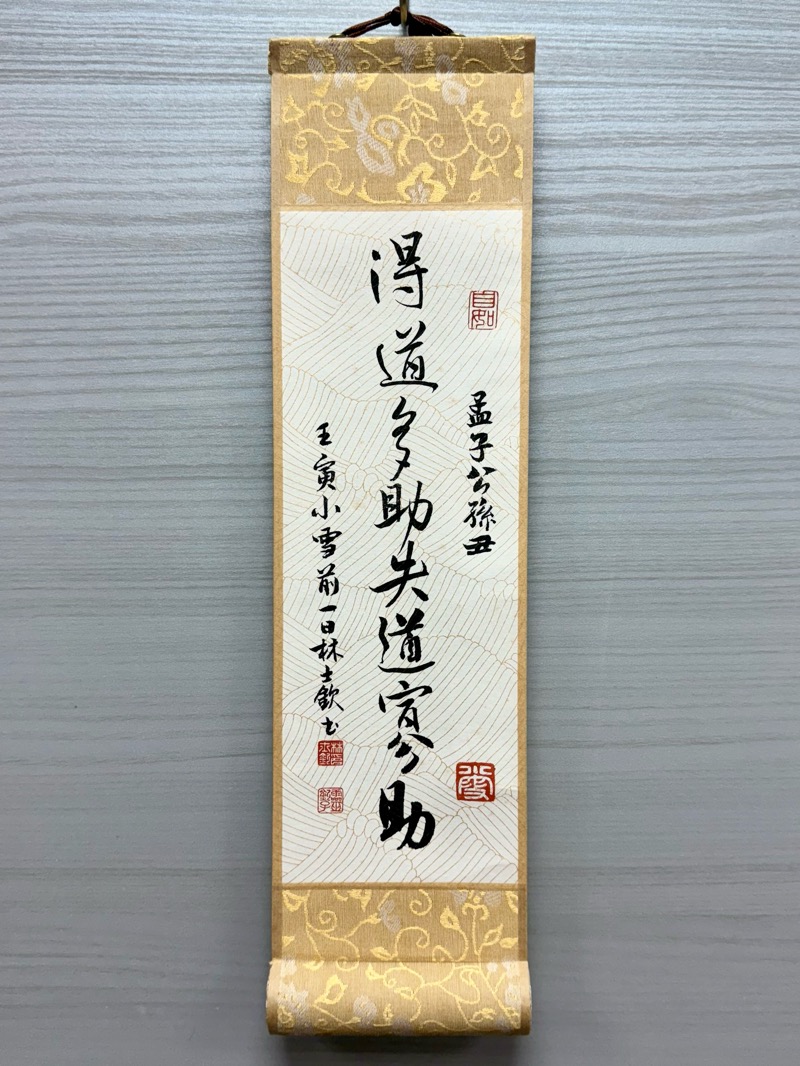 孟子公孫丑
得道多助失道寡助
壬寅小雪前一日林士欽書
自如